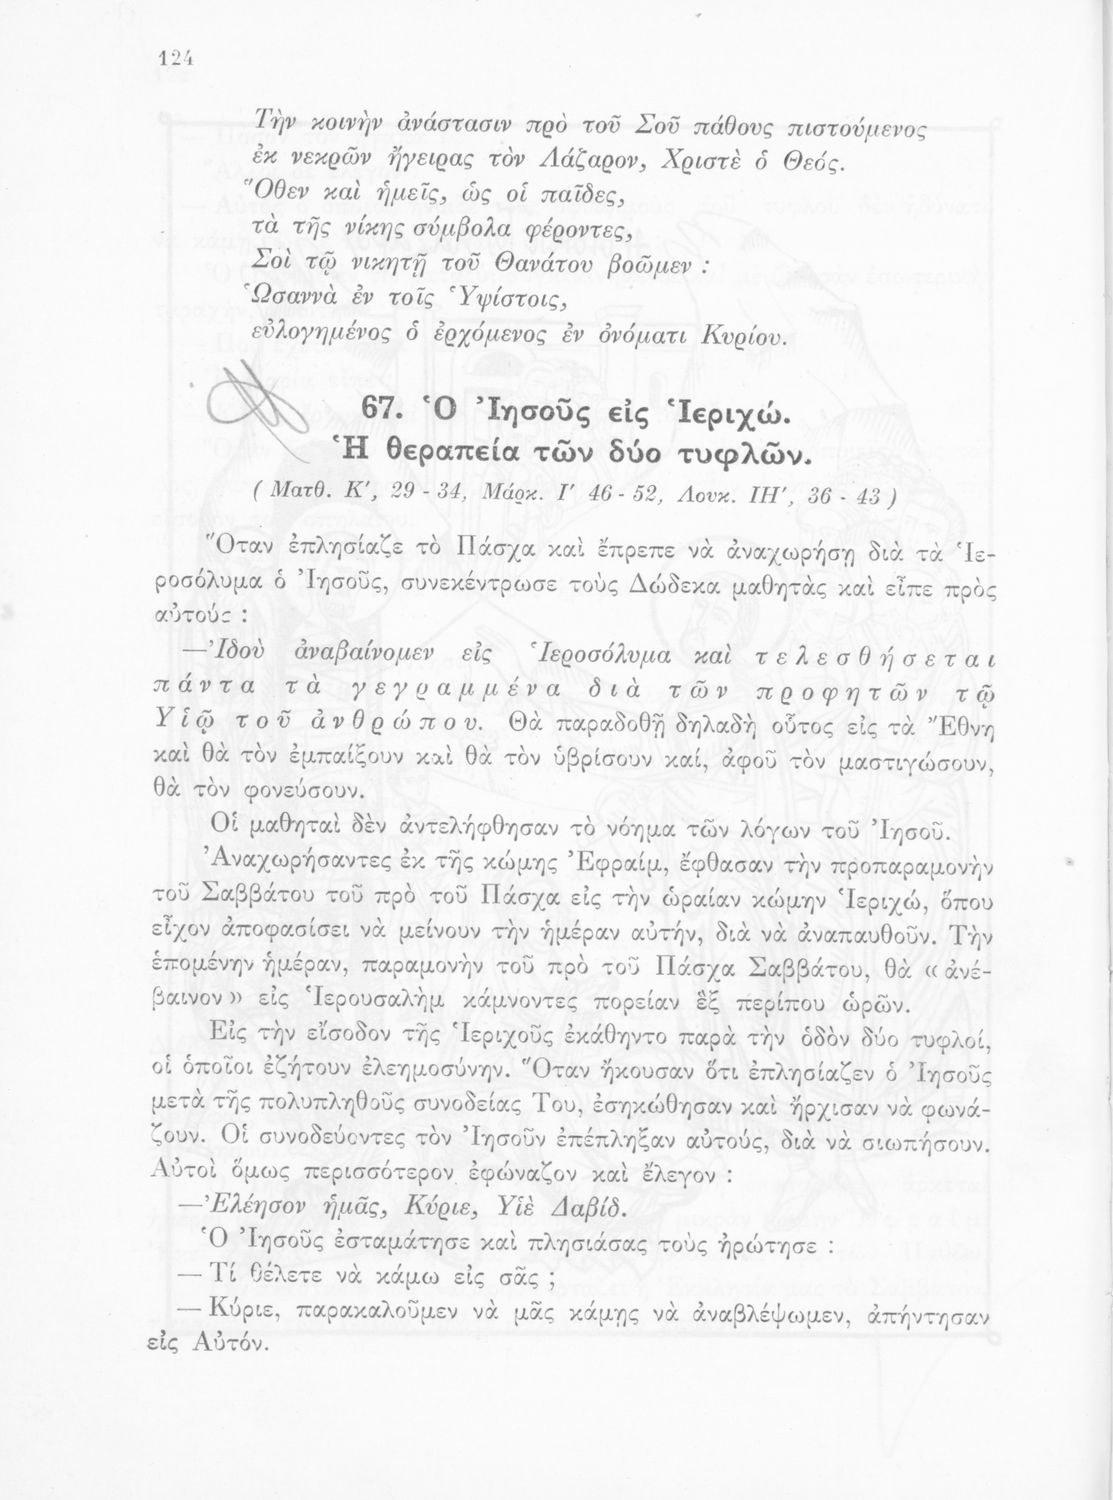 124
Τὴν κοινὴν ἀνάστασιν πρὸ τοῦ Σοῦ πάθους πιστούμενος
ἐκ νεκρῶν ἤγειρας τὸν Λάζαρον, Χριστὲ ὁ Θεός.
Ὅθεν καὶ ἡμεῖς, ὡς οἱ παῖδες,
τὰ τῆς νίκης σύμβολα φέροντες,
Σοὶ τῷ νικητῇ τοῦ Θανάτου βοῶμεν :
Ὡσαννὰ ἐν τοῖς Ὑψίστοις,
εὐλογημένος ὁ ἐρχόμενος ἐν ὀνόματι Κυρίου.
67. Ὁ Ἰησοῦς εἰς Ἱεριχώ.
Ἡ θεραπεία τῶν δύο τυφλῶν.
( Ματθ. Κ', 29 - 34, Μάρκ. Ι' 46 - 52, Λουκ. ΙΗ', 36 - 43 )
Ὅταν ἐπλησίαζε τὸ Πάσχα καὶ ἔπρεπε νὰ ἀναχωρήσῃ διὰ τὰ Ἱε-
ροσόλυμα ὁ Ἰησοῦς, συνεκέντρωσε τοὺς Δώδεκα μαθητὰς καὶ εἶπε πρὸς
αὐτούς :
—Ἰδοὺ ἀναβαίνομεν εἰς Ἱεροσόλυμα καὶ τελεσθήσεται
πάντα τὰ γεγραμμένα διὰ τῶν προφητῶν τῷ
Υἱῷ τοῦ ἀνθρώπου. Θὰ παραδοθῇ δηλαδὴ οὗτος εἰς τὰ Ἔθνη
καὶ θὰ τὸν ἐμπαίξουν καὶ θὰ τὸν ὑβρίσουν καί, ἀφοῦ τὸν μαστιγώσουν,
θὰ τὸν φονεύσουν.
Οἱ μαθηταὶ δὲν ἀντελήφθησαν τὸ νόημα τῶν λόγων τοῦ Ἰησοῦ.
Ἀναχωρήσαντες ἐκ τῆς κώμης Ἐφραίμ, ἔφθασαν τὴν προπαραμονὴν
τοῦ Σαββάτου τοῦ πρὸ τοῦ Πάσχα εἰς τὴν ὡραίαν κώμην Ἱεριχώ, ὅπου
εἶχον ἀποφασίσει νὰ μείνουν τὴν ἡμέραν αὐτήν, διὰ νὰ ἀναπαυθοῦν. Τὴν
ἑπομένην ἡμέραν, παραμονὴν τοῦ πρὸ τοῦ Πάσχα Σαββάτου, θὰ « ἀνέ-
βαινον » εἰς Ἱερουσαλὴμ κάμνοντες πορείαν ἓξ περίπου ὡρῶν.
Εἰς τὴν εἴσοδον τῆς Ἱεριχοῦς ἐκάθηντο παρὰ τὴν ὁδὸν δύο τυφλοί,
οἱ ὁποῖοι ἐζήτουν ἐλεημοσύνην. Ὅταν ἤκουσαν ὅτι ἐπλησίαζεν ὁ Ἰησοῦς
μετὰ τῆς πολυπληθοῦς συνοδείας Του, ἐσηκώθησαν καὶ ἤρχισαν νὰ φωνά-
ζουν. Οἱ συνοδεύοντες τὸν Ἰησοῦν ἐπέπληξαν αὐτούς, διὰ νὰ σιωπήσουν.
Αὐτοὶ ὅμως περισσότερον ἐφώναζον καὶ ἔλεγον :
—Ἐλέησον ἡμᾶς, Κύριε, Υἱὲ Δαβίδ.
Ὁ Ἰησοῦς ἐσταμάτησε καὶ πλησιάσας τοὺς ἠρώτησε :
— Τί θέλετε νὰ κάμω εἰς σᾶς ;
— Κύριε, παρακαλοῦμεν νὰ μᾶς κάμῃς νὰ ἀναβλέψωμεν, ἀπήντησαν
εἰς Αὐτόν.